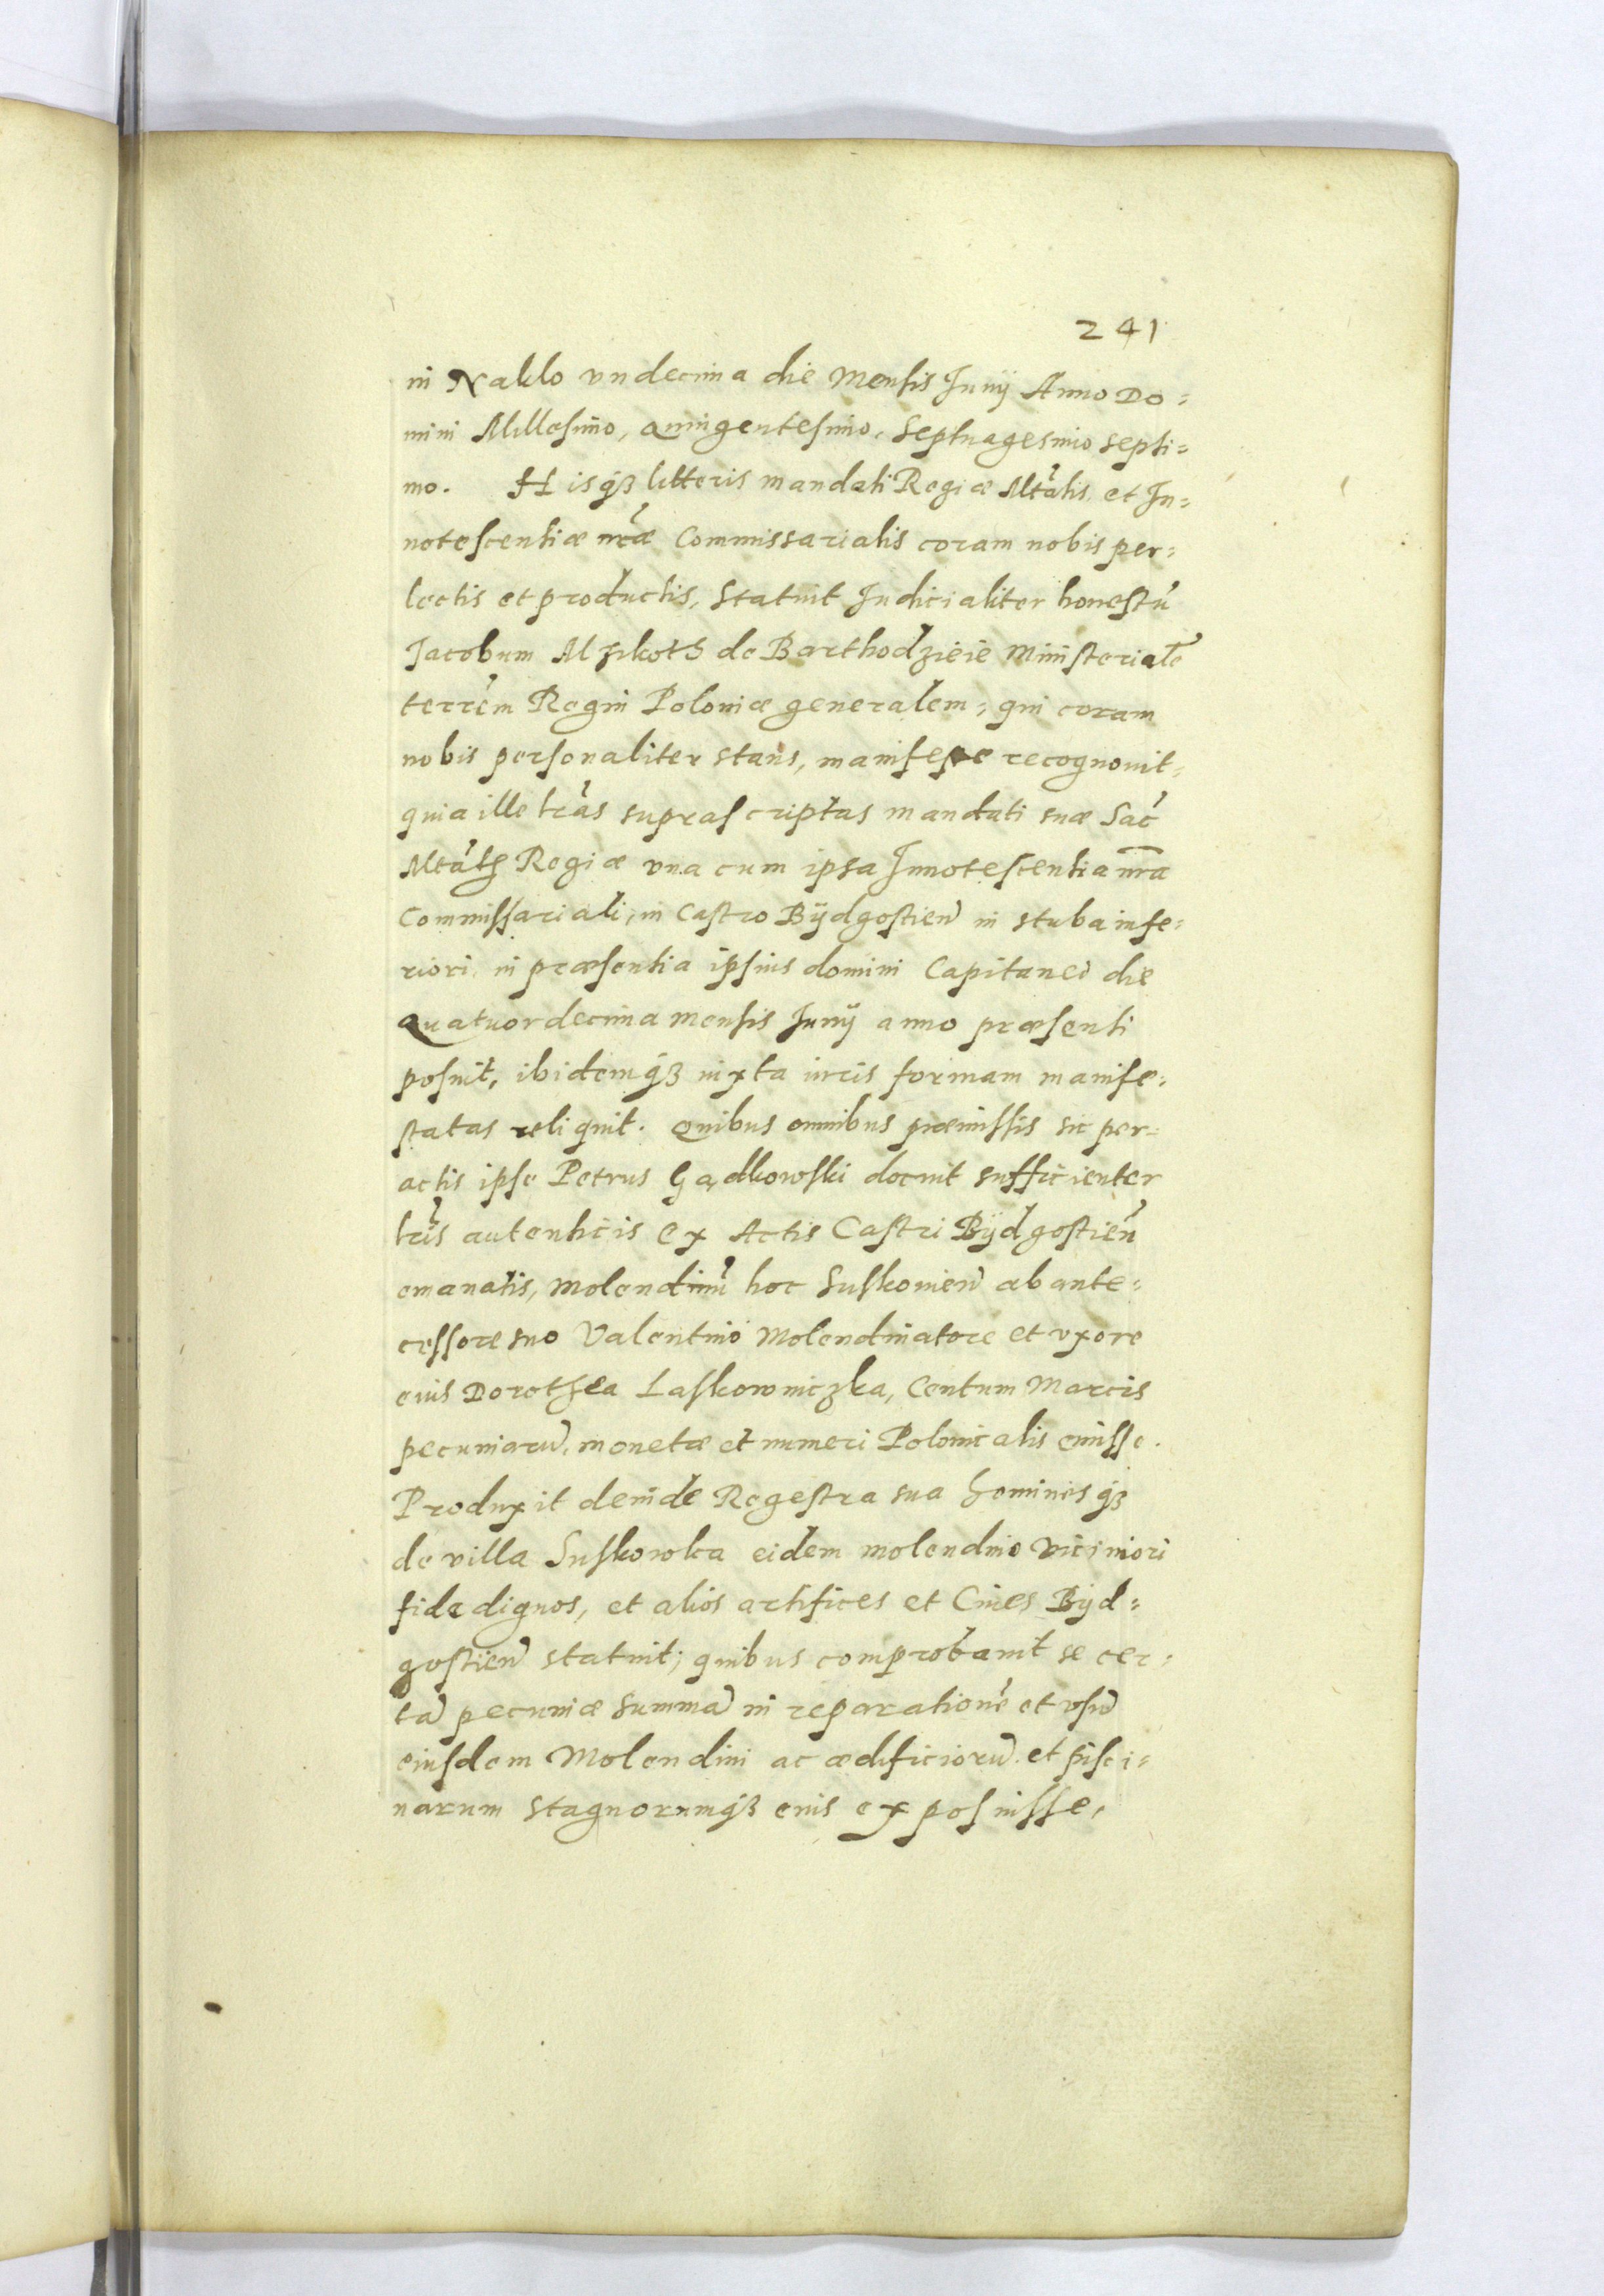 241
in Naklo vndecima die Mensis Junij Anno Do=
mini Millesimo, Quingentesimo, Septuagesimo septi=
mo. Hisq3 litteris mandati Regiæ Mtãtis et In=
notescentiæ nrãæ Commissarialis coram nobis per=
lectis et productis, Statuit Judicialiter honestũ
Jacobum Mzikoth de Barthodzieie Ministerialẽ
terrẽm Regni Poloniæ generalem, qui coram
nobis personaliter stans, manifeste recognouit,
quia ille lrãs suprascriptas mandati suæ Sac̃
Mtãtis Regiæ vna cum ipsa Innotescentia nrã
Commissariali, in Castro Bÿdgostien̄ in stuba infe=
riori in præsentia ipsius domini Capitanei die
Quatuordecima mensis Junij anno præsenti
posuit, ibidemq3 iuxta iuris formam manife=
statas reliquit. Quibus omnibus præmissis sic per=
actis ipse Petrus Gądkowski docuit sufficienter
lrĩs autenticis ex Actis Castri Bÿdgostien̄
emanatis, Molendinũ hoc Suskowien̄ ab ante=
cessore suo Valentino Molendinatore et vxore
eius Dorothea Laskowniczka, Centum Marcis
pecuniarũ, monetæ et numeri Polonicalis emisse.
Produxit deinde Regestra sua hominesq3
de villa Suskowka eidem molendino viciniori
fide dignos, et alios artifices et Ciues Bÿd=
gostien̄ statuit; quibus comprobauit se cer=
tã pecuniæ summã in reparationẽ et vsũ
eiusdem Molendini ac ædificiorũ et pisci=
narum stagnorumq3 eius exposuisse,